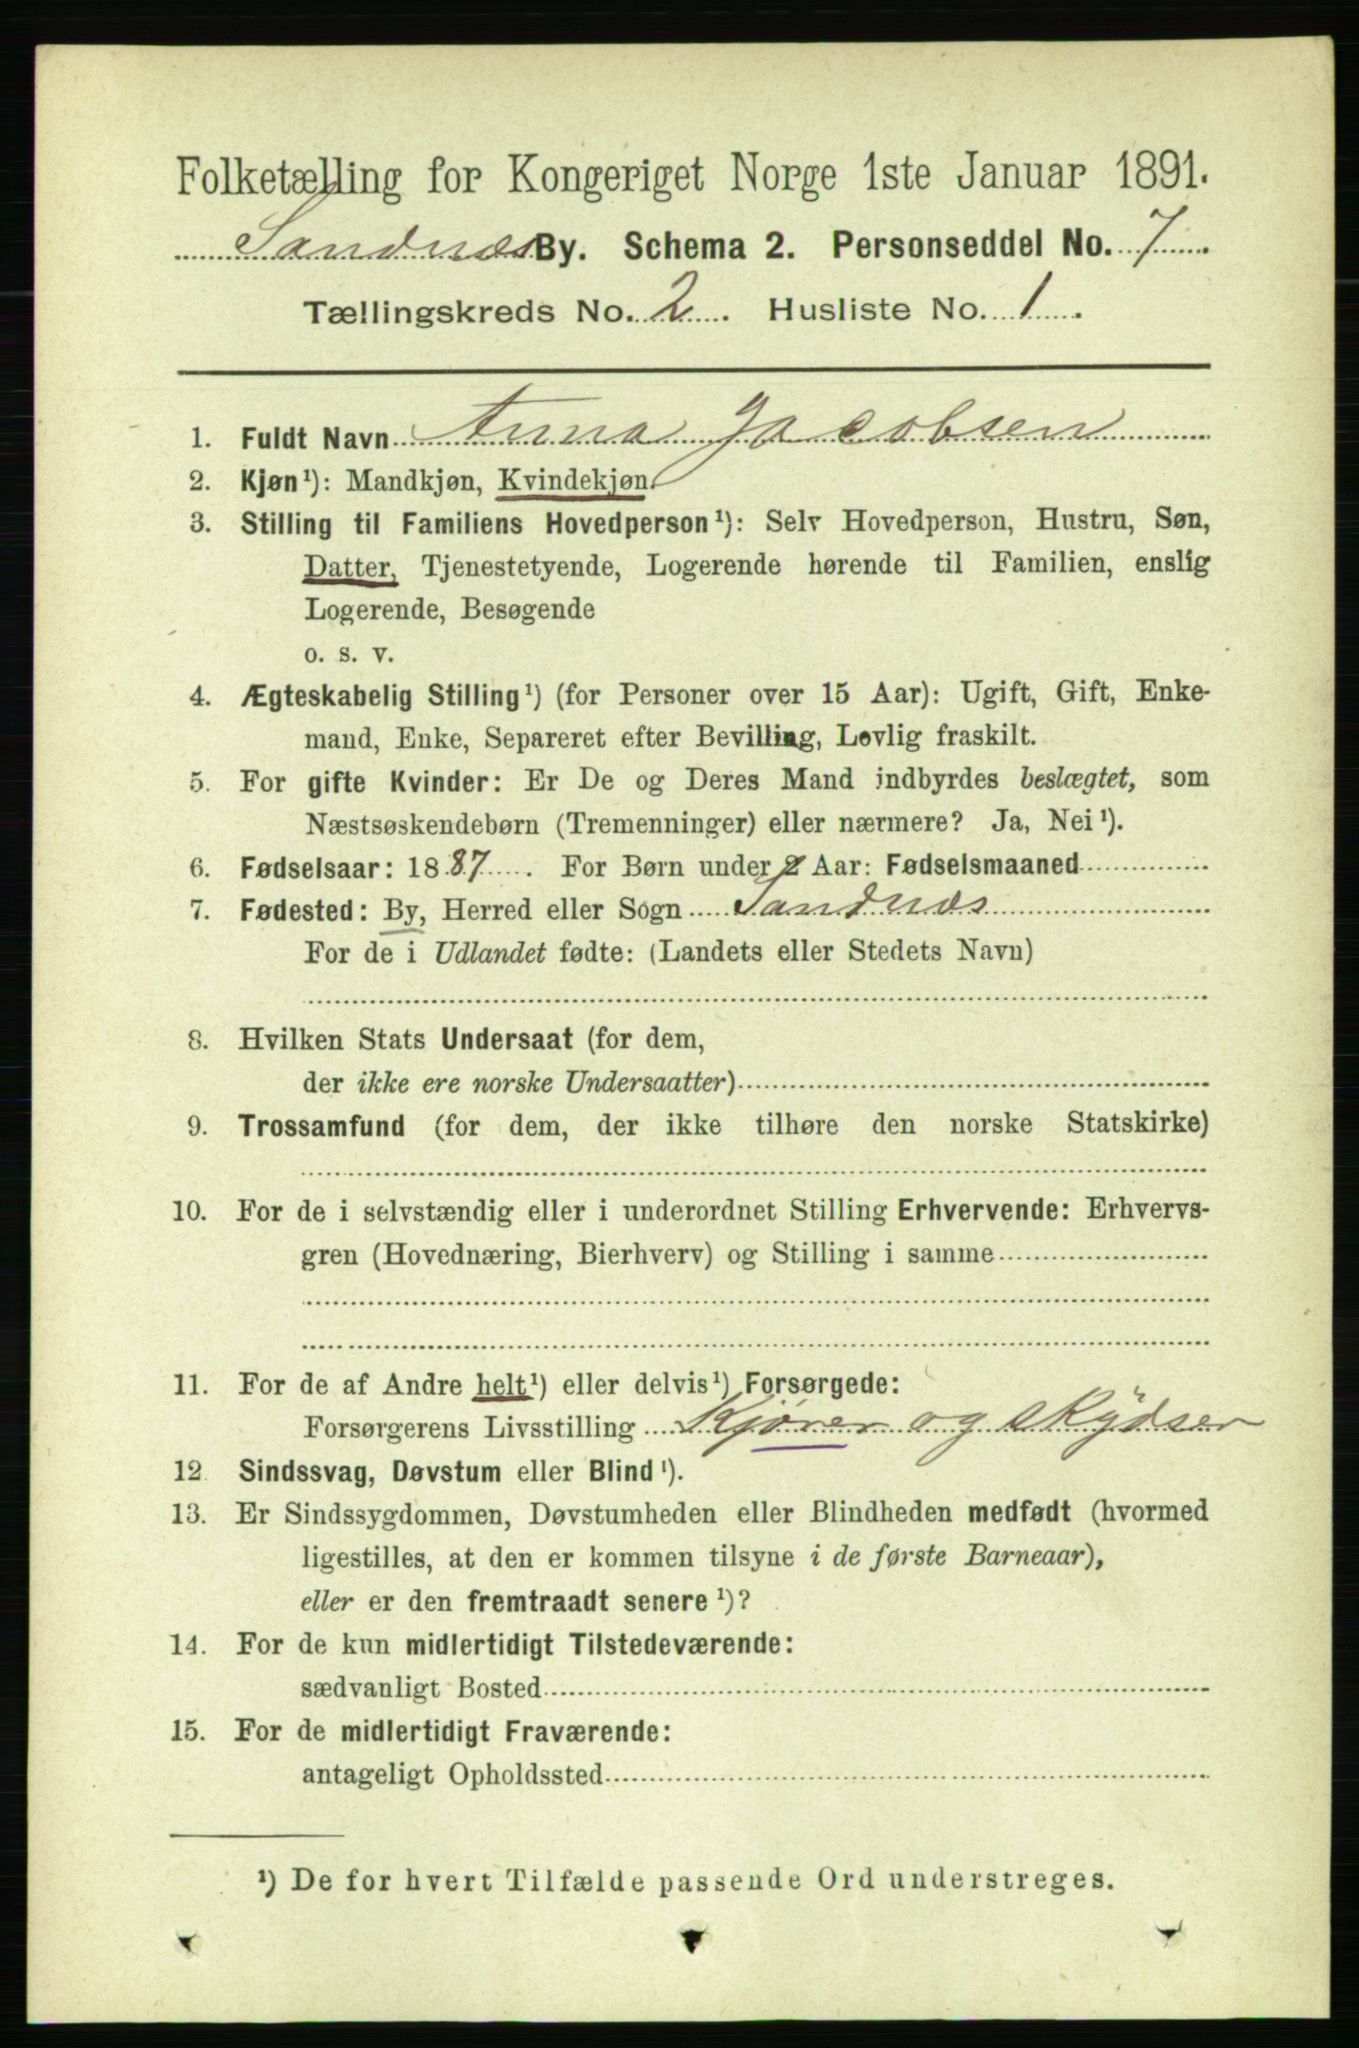 Folketælling for Kongeriget Norge 1ste Januar 1891.
Sandnæs By. Schema 2. Personseddel No. 7
Tællingskreds No. 2. Husliste No. 1.
1. Fuldt Navn Anna Jacobsen
2. Kjøn¹): Mandkjøn, Kvindekjøn.
3. Stilling til Familiens Hovedperson¹): Selv Hovedperson, Hustru, Søn,
Datter, Tjenestetyende, Logerende hørende til Familien, enslig
Logerende, Besøgende
o. s. v.
4. Ægteskabelig Stilling¹) (for Personer over 15 Aar): Ugift, Gift, Enke-
mand, Enke, Separeret efter Bevilling, Lovlig fraskilt.
5. For gifte Kvinder: Er De og Deres Mand indbyrdes beslægtet, som
Næstsøskendebørn (Tremenninger) eller nærmere? Ja, Nei¹).
6. Fødselsaar: 1887. For Børn under 2 Aar: Fødselsmaaned
7. Fødested: By, Herred eller Sogn Sandnæs
For de i Udlandet fødte: (Landets eller Stedets Navn)
8. Hvilken Stats Undersaat (for dem,
der ikke ere norske Undersaatter)
9. Trossamfund (for dem, der ikke tilhøre den norske Statskirke)
10. For de i selvstændig eller i underordnet Stilling Erhvervende: Erhvervs-
gren (Hovednæring, Bierhverv) og Stilling i samme
11. For de af Andre helt¹) eller delvis¹) Forsørgede:
Forsørgerens Livsstilling Kjører og skydser
12. Sindssvag, Døvstum eller Blind¹).
13. Er Sindssygdommen, Døvstumheden eller Blindheden medfødt (hvormed
ligestilles, at den er kommen tilsyne i de første Barneaar),
eller er den fremtraadt senere¹)?
14. For de kun midlertidigt Tilstedeværende:
sædvanligt Bosted
15. For de midlertidigt Fraværende:
antageligt Opholdssted
¹) De for hvert Tilfælde passende Ord understreges.